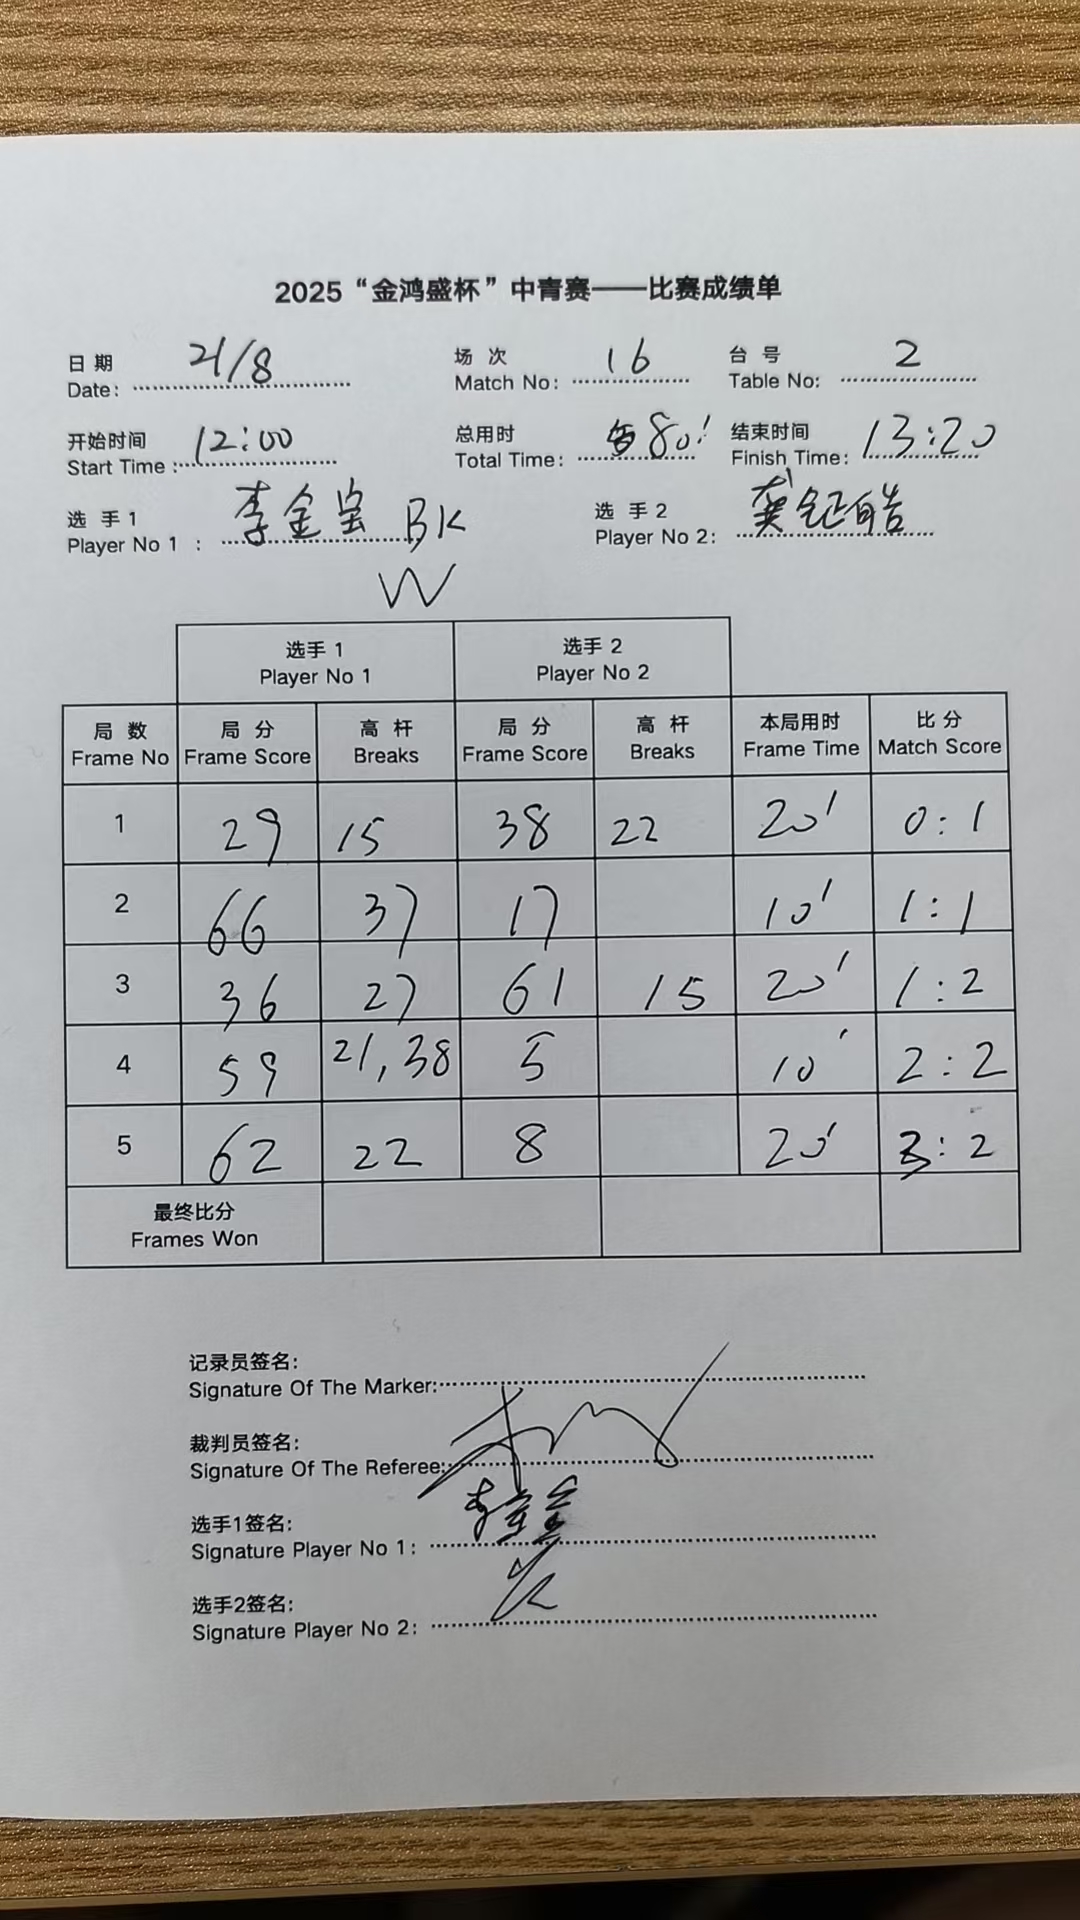 2025“金鸿盛杯”中青赛——比赛成绩单
日期 21/8 场次 16 台号 2
Date: Match No: Table No:
开始时间 12:00 总用时 80' 结束时间 13:20
Start Time: Total Time: Finish Time:
选手1 李金宝 BK 选手2 龚钲皓
Player No 1: Player No 2:
W
选手 1 选手 2
Player No 1 Player No 2
局数 局分 高杆 局分 高杆 本局用时 比分
Frame No Frame Score Breaks Frame Score Breaks Frame Time Match Score
1 29 15 38 22 20' 0:1
2 66 37 17 10' 1:1
3 36 27 61 15 20' 1:2
4 59 21,38 5 10' 2:2
5 62 22 8 20' 3:2
最终比分
Frames Won
记录员签名:
Signature Of The Marker:
裁判员签名:
Signature Of The Referee:
选手1签名:
Signature Player No 1:
选手2签名:
Signature Player No 2: